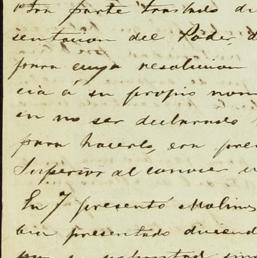 otra parte traslado de
sentacion del Poder, d
para cuya resolucion
cia á su propio nom
en no ser declarado
para hacerlo, era pre
Superior al conocer e
En 7 presentó Molin
bia presentado duend